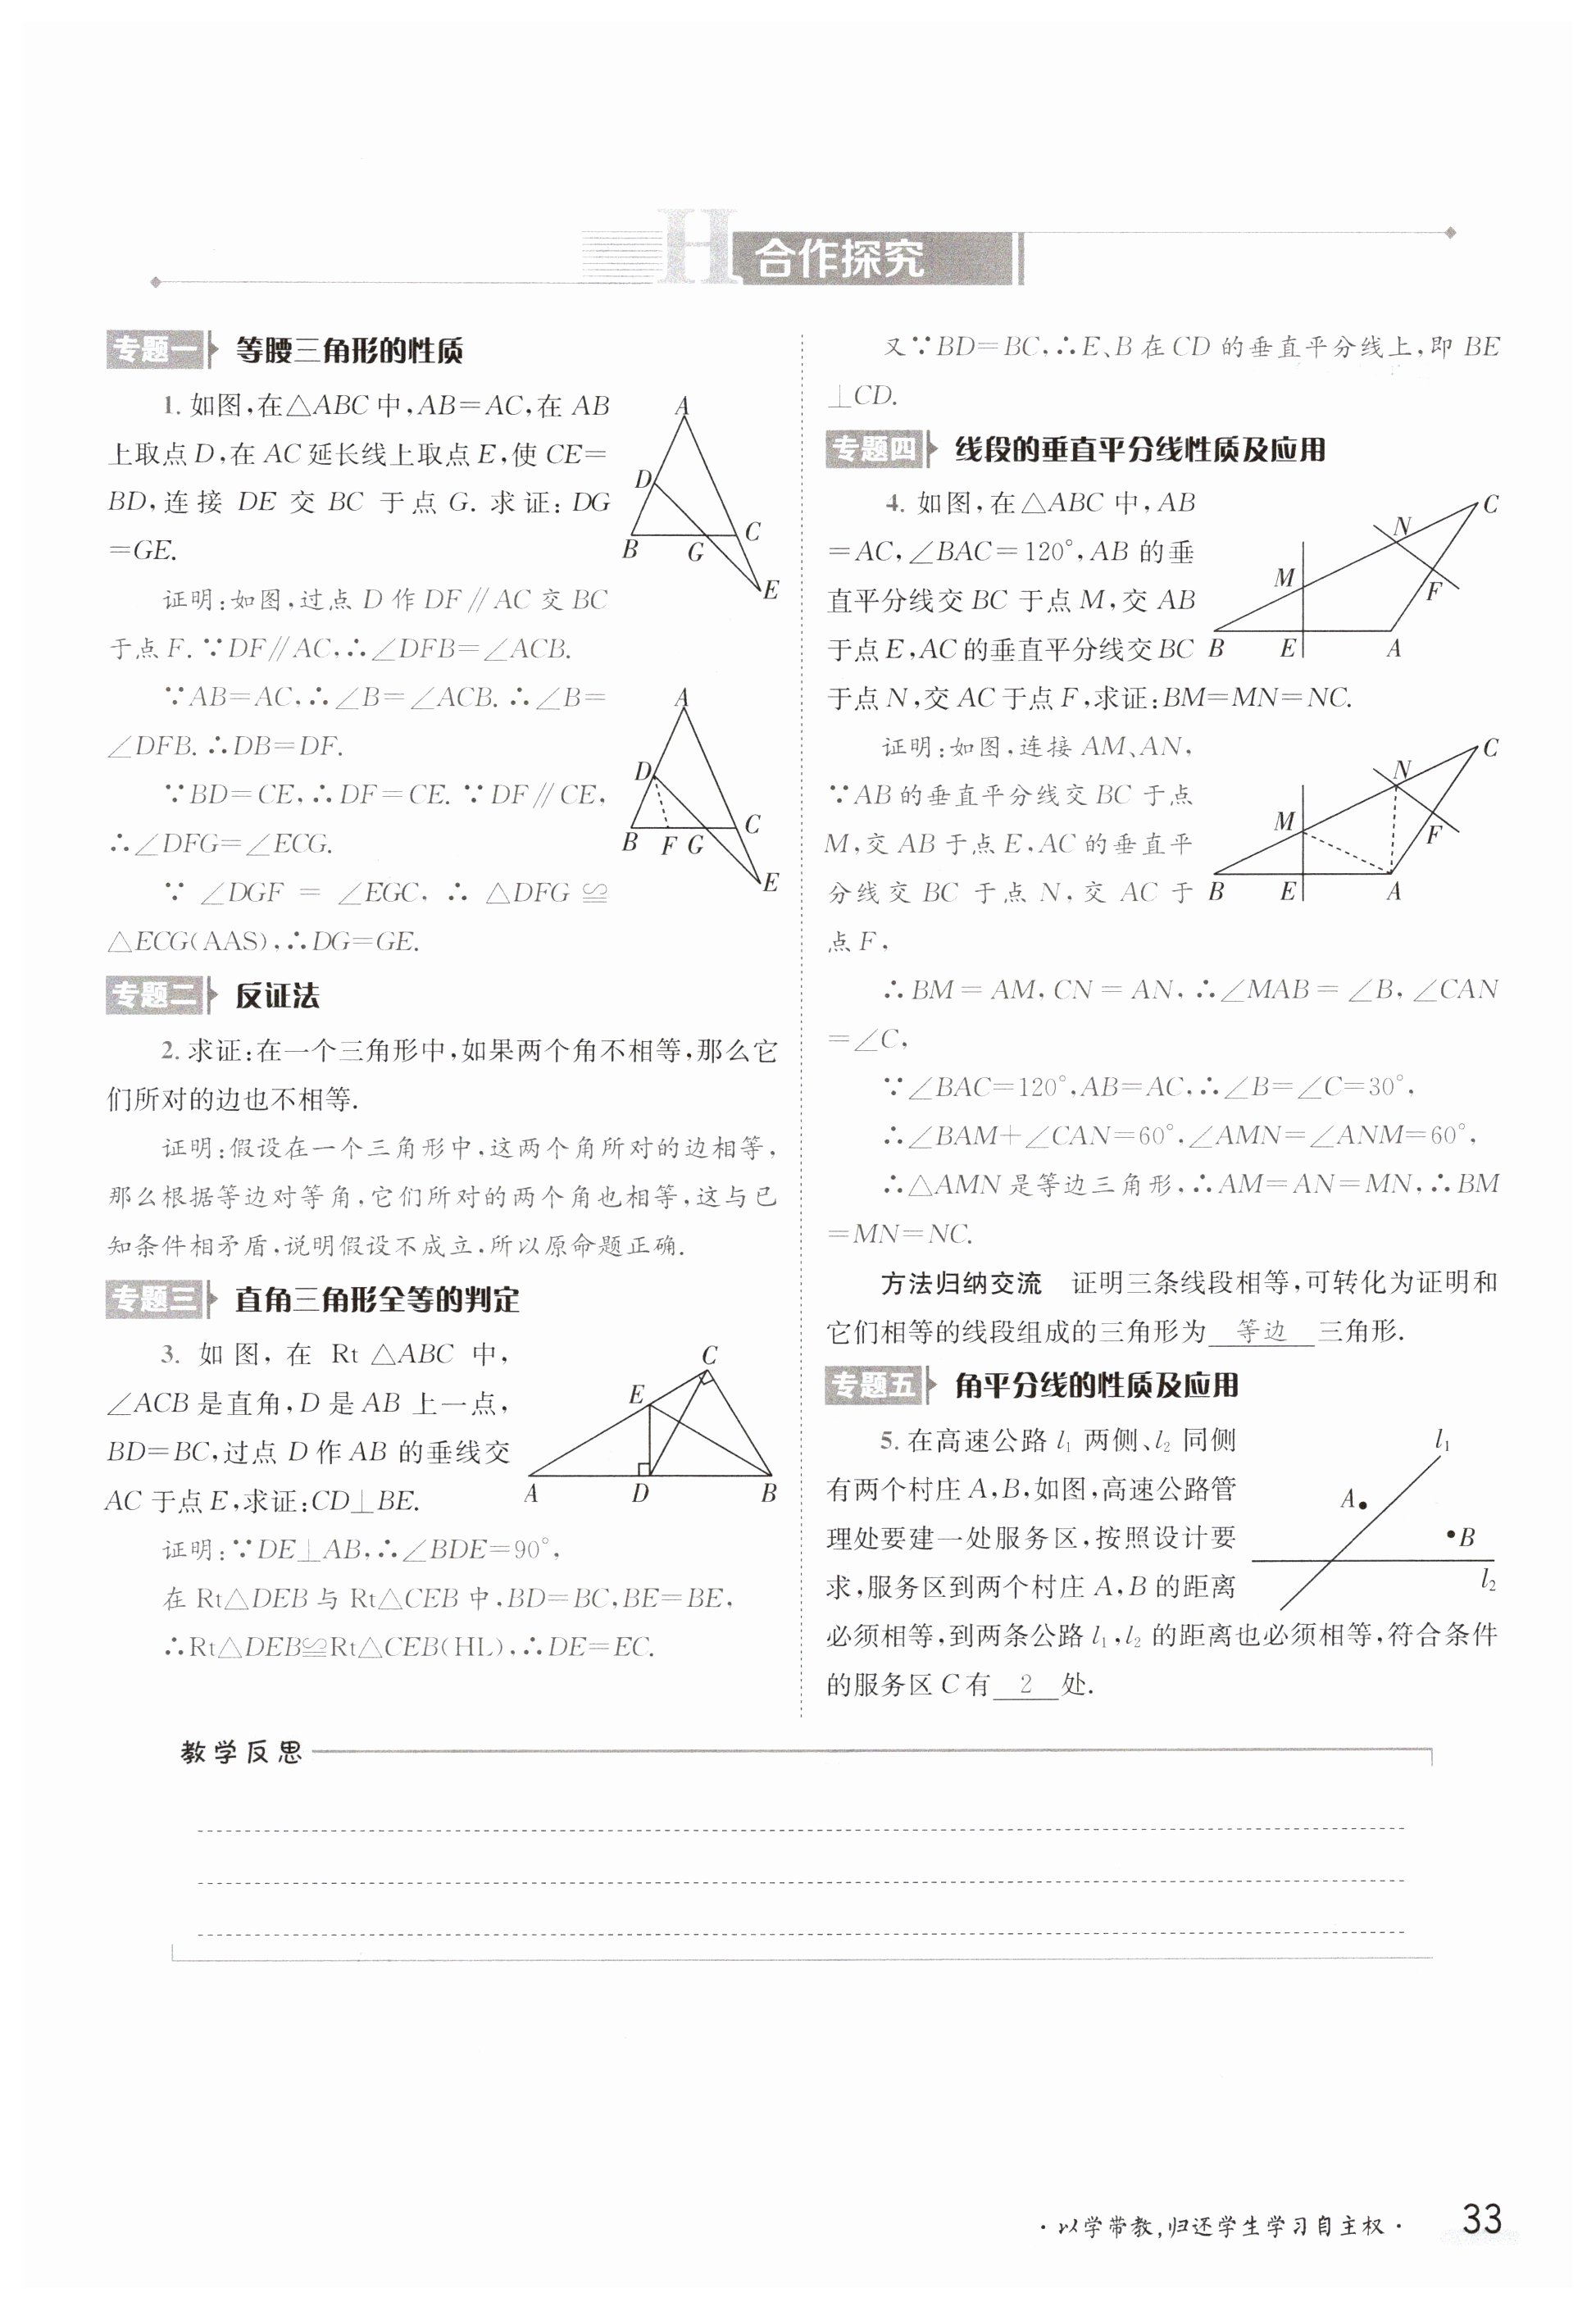 H 合作探究
专题一 等腰三角形的性质
1. 如图,在△ABC 中,AB=AC,在 AB
上取点 D,在 AC 延长线上取点 E,使 CE=
BD,连接 DE 交 BC 于点 G. 求证: DG
=GE.
A
D
B
G
C
E
证明:如图,过点 D 作 DF∥AC 交 BC
于点 F. ∵DF∥AC,∴∠DFB=∠ACB.
∵AB=AC,∴∠B=∠ACB. ∴∠B=
∠DFB. ∴DB=DF.
∵BD=CE,∴DF=CE. ∵DF∥CE,
∴∠DFG=∠ECG.
∵ ∠DGF = ∠EGC, ∴ △DFG ≌
△ECG(AAS),∴DG=GE.
A
D
B
F
G
C
E
专题二 反证法
2. 求证:在一个三角形中,如果两个角不相等,那么它
们所对的边也不相等.
证明:假设在一个三角形中,这两个角所对的边相等,
那么根据等边对等角,它们所对的两个角也相等,这与已
知条件相矛盾,说明假设不成立,所以原命题正确.
专题三 直角三角形全等的判定
3. 如图, 在 Rt △ABC 中,
∠ACB 是直角,D 是 AB 上一点,
BD=BC,过点 D 作 AB 的垂线交
AC 于点 E,求证:CD⊥BE.
C
E
A
D
B
证明:∵DE⊥AB,∴∠BDE=90°,
在 Rt△DEB 与 Rt△CEB 中,BD=BC,BE=BE,
∴Rt△DEB≌Rt△CEB(HL),∴DE=EC.
又∵BD=BC,∴E、B 在 CD 的垂直平分线上,即 BE
⊥CD.
专题四 线段的垂直平分线性质及应用
4. 如图,在△ABC 中,AB
=AC,∠BAC=120°,AB 的垂
直平分线交 BC 于点 M,交 AB
于点 E,AC 的垂直平分线交 BC
于点 N,交 AC 于点 F,求证:BM=MN=NC.
C
N
M
F
B
E
A
证明:如图,连接 AM、AN,
∵AB 的垂直平分线交 BC 于点
M,交 AB 于点 E,AC 的垂直平
分线交 BC 于点 N,交 AC 于
点 F,
C
N
M
F
B
E
A
∴BM=AM,CN=AN,∴∠MAB=∠B,∠CAN
=∠C,
∵∠BAC=120°,AB=AC,∴∠B=∠C=30°,
∴∠BAM+∠CAN=60°,∠AMN=∠ANM=60°,
∴△AMN 是等边三角形,∴AM=AN=MN,∴BM
=MN=NC.
方法归纳交流 证明三条线段相等,可转化为证明和
它们相等的线段组成的三角形为 等边 三角形.
专题五 角平分线的性质及应用
5. 在高速公路 l₁ 两侧、l₂ 同侧
有两个村庄 A,B,如图,高速公路管
理处要建一处服务区,按照设计要
求,服务区到两个村庄 A,B 的距离
必须相等,到两条公路 l₁,l₂ 的距离也必须相等,符合条件
的服务区 C 有 2 处.
l₁
A
B
l₂
教学反思
·以学带教,归还学生学习自主权·
33